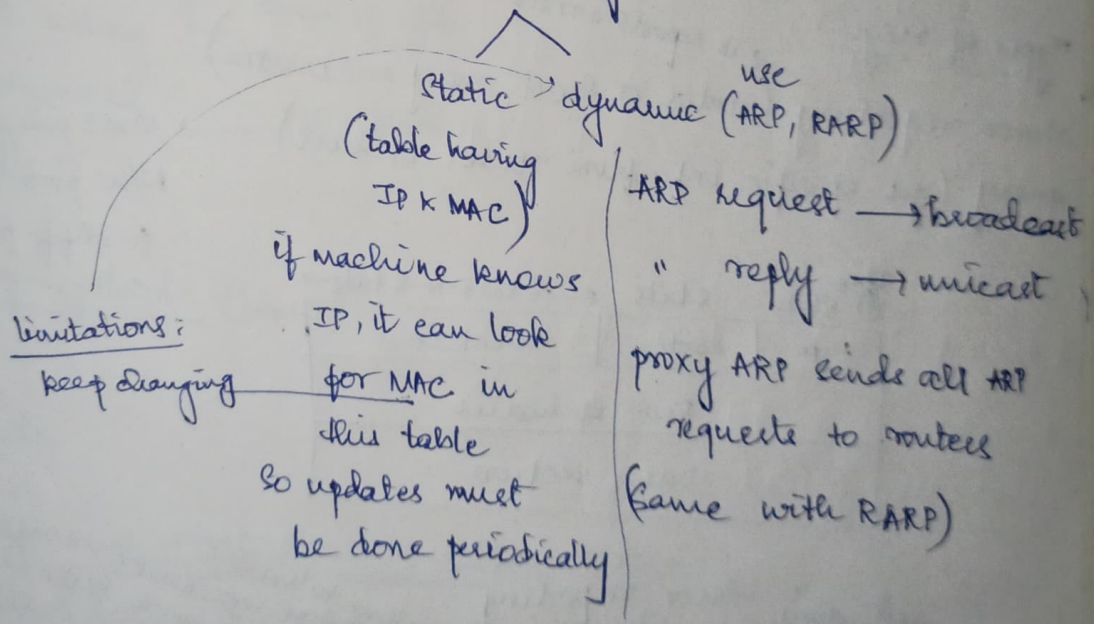 use
static dynamic (ARP, RARP)
(table having
IP & MAC)
if machine knows
IP, it can look
for MAC in
this table
so updates must
be done periodically
limitations:
keep changing
ARP request → broadcast
" reply → unicast
proxy ARP sends all ARP
requests to routers
(same with RARP)